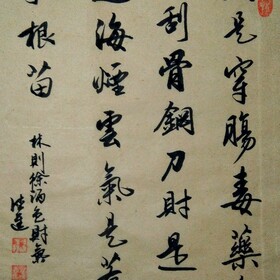 是穿腸毒藥
刮骨鋼刀財是
海煙雲氣是
根苗
林則徐酒色財氣